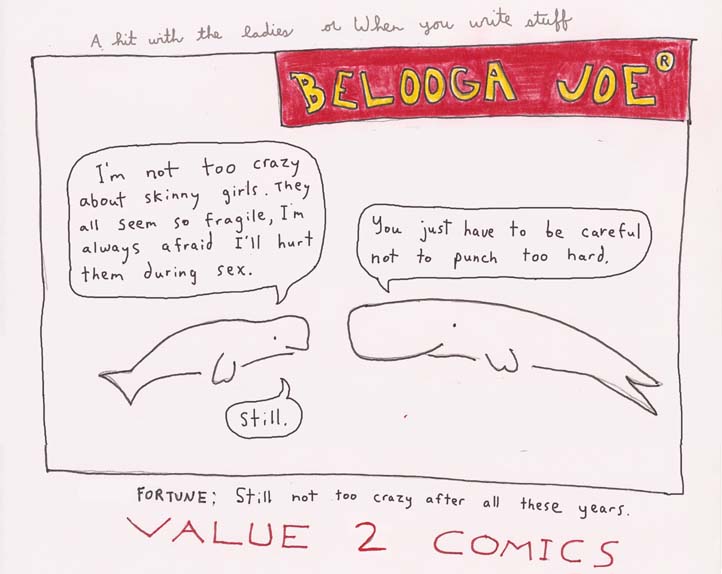 A hit with the ladies or When you write stuff
BELOOGA JOE®
I'm not too crazy
about skinny girls. They
all seem so fragile, I'm
always afraid I'll hurt
them during sex.
You just have to be careful
not to punch too hard.
Still.
FORTUNE; Still not too crazy after all these years.
VALUE 2 COMICS